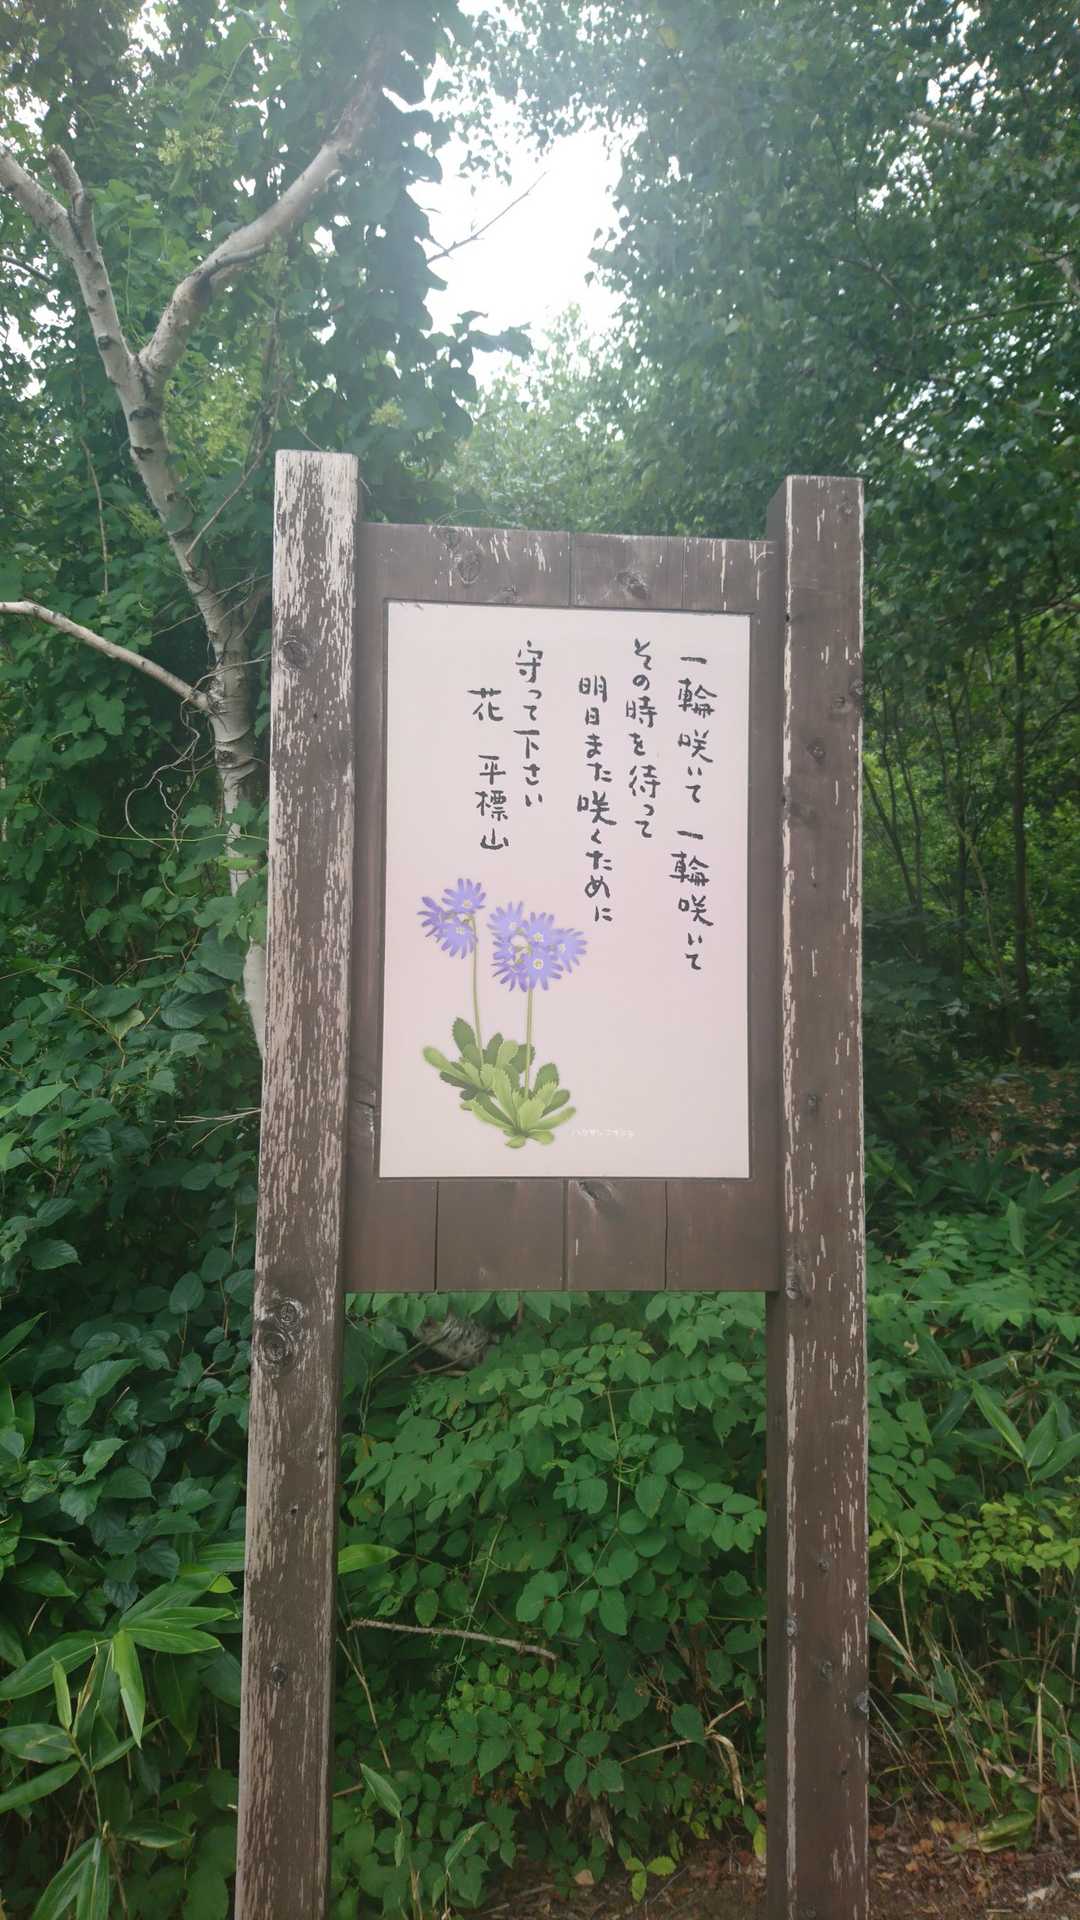 一輪咲いて 一輪咲いて
その時を待って
明日また咲くために
守って下さい
花 平標山
ハクサンコザクラ